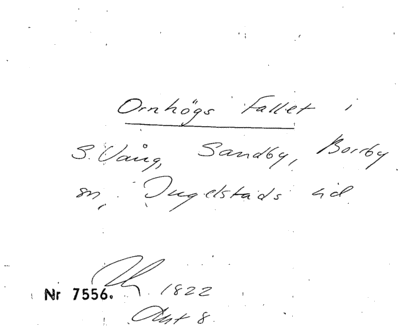 Ornhögs fallet i
S. Vång, Sandby, Borrby
sn, Ingelstads hd
Nr 7556. 1822
Okt 8